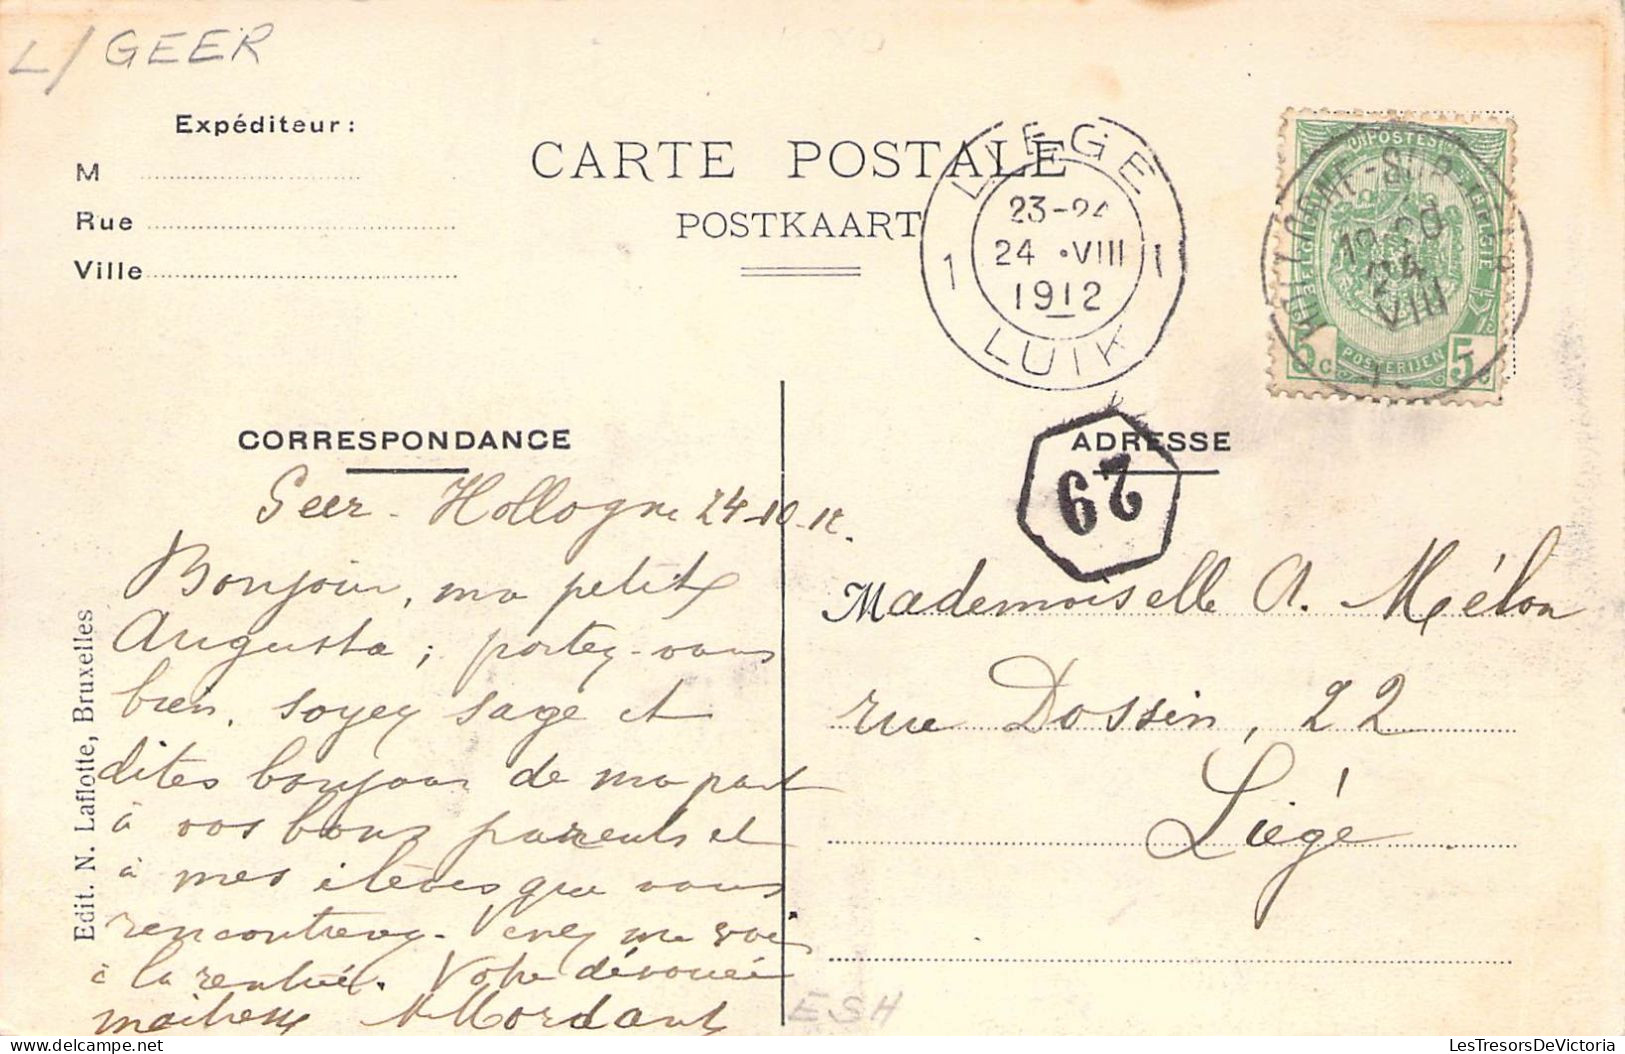 L/ GEER
Expéditeur:
M
Rue
Ville
CARTE POSTALE
POSTKAART
LIEGE
23-24
24 •VIII
1912
1 1
LUIK
HOLLOGNE-SUR-GEER
24
VIII
POSTES
BELGIQUE
BELGIE
POSTERIJEN
5c 5c
CORRESPONDANCE
ADRESSE
29
Geer - Hollogne 24-10-12.
Bonjour, ma petite
Augusta; portez-vous
bien, soyez sage et
dites bonjour de ma part
à vos bons parents et
à mes élèves que vous
rencontrerez. Venez me voir
à la rentrée. Votre dévouée
maîtresse Mordant
Mademoiselle A. Mélon
rue Dossin, 22
Liége
Edit. N. Laflotte, Bruxelles
ESH
LesTresorsDeVictoria